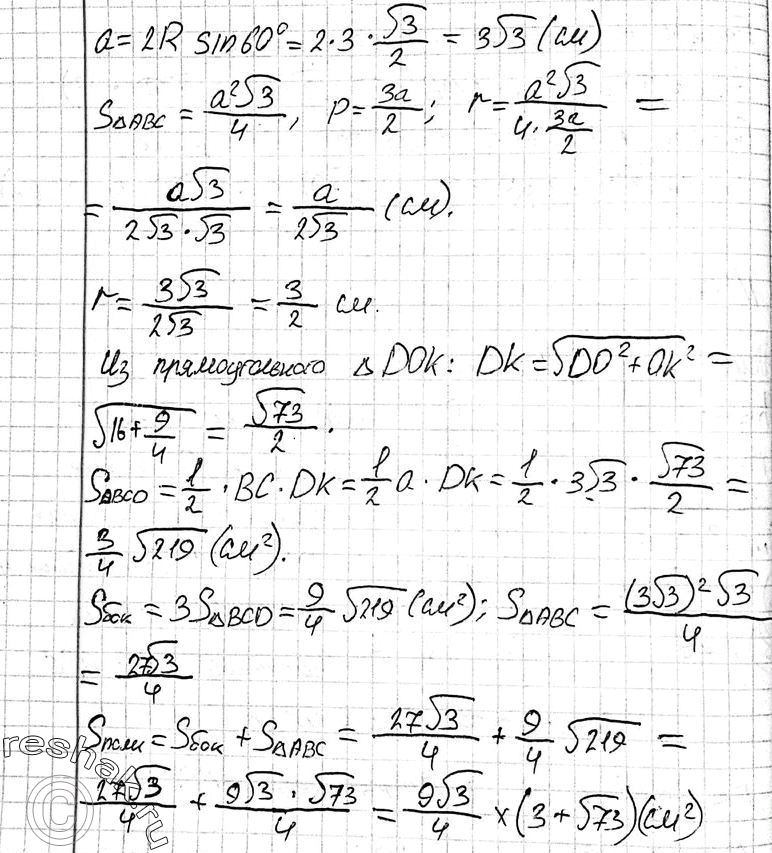 a = 2R sin60° = 2·3·√3/2 = 3√3 (см)
S△ABC = a²√3/4, p = 3a/2; r = a²√3/(4·3a/2) =
= a√3/(2√3·√3) = a/(2√3) (см).
r = 3√3/(2√3) = 3/2 см.
Из прямоугольного △DOK: DK = √(DO²+OK²) =
√(16+9/4) = √73/2.
S△BCD = 1/2·BC·DK = 1/2 a·DK = 1/2·3√3·√73/2 =
3/4 √219 (см²).
Sбок = 3S△BCD = 9/4 √219 (см²); S△ABC = (3√3)²√3/4
= 27√3/4
Sполн = Sбок + S△ABC = 27√3/4 + 9/4 √219 =
27√3/4 + 9√3·√73/4 = 9√3/4 ×(3+√73)(см²)
reshak.ru